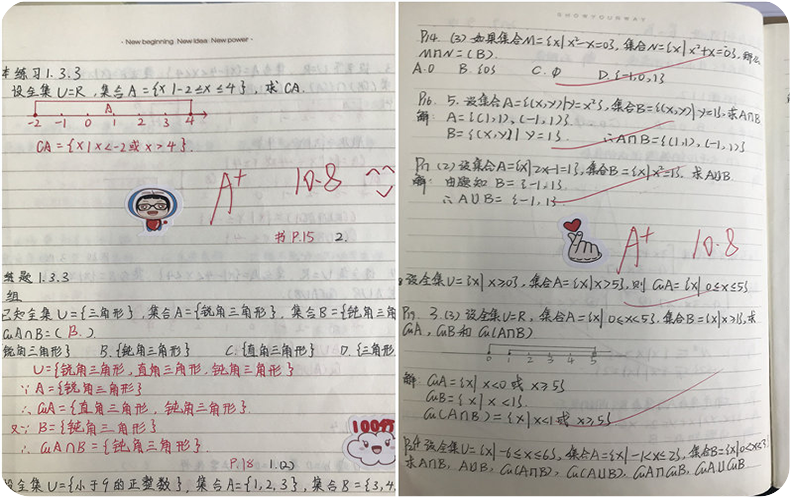 · New beginning · New idea · New power ·
练习1.3.3
设全集U=R, 集合A={x|-2≤x≤4}, 求CA.
A
-2 -1 0 1 2 3 4
CA={x|x<-2或x>4}.
A+ 10-8
书P.15 2.
练习题1.3.3
组
已知全集U={三角形}, 集合A={锐角三角形}, 集合B={钝角三角
CuA∩B=( B. )
锐角三角形} B.{钝角三角形} C.{直角三角形} D.{三角形
U={锐角三角形,直角三角形,钝角三角形}
∵A={锐角三角形}
∴CuA={直角三角形,钝角三角形}.
又∵B={钝角三角形}
∴CuA∩B={钝角三角形}.
100分
P.18 1.(2)
设全集U={小于9的正整数}, 集合A={1,2,3}, 集合B={3,4,
SHOWYOURWAY
P14. (3) 如果集合M={x|x²-x=0}, 集合N={x|x²+x=0}, 那么
M∩N=(B).
A.0 B.{0} C.∅ D.{-1,0,1}
P16. 5. 设集合A={(x,y)|y=x²}, 集合B={(x,y)|y=1}, 求A∩B
解: A={(1,1), (-1,1)}
B={(x,y)|y=1}. ∴A∩B={(1,1), (-1,1)}
P17 (2) 设集合A={x|2x-1=1}, 集合B={x|x²=1}. 求A∪B.
解: 由题知 B={-1,1}.
∴A∪B={-1,1}.
A+ 10-8
设全集U={x|x>0}, 集合A={x|x>5}, 则CuA={x|0≤x≤5}
P19. 3.(3) 设全集U=R, 集合A={x|0≤x<5}, 集合B={x|x≥1}, 求
CuA, CuB和Cu(A∩B)
0 1 2 3 4 5
解: CuA={x|x<0或x≥5}
CuB={x|x<1}.
Cu(A∩B)={x|x<1或x≥5}
设全集U={x|-6≤x≤6}, 集合A={x|-1<x≤2}, 集合B={x|0<x<3}
求A∩B, A∪B, Cu(A∩B), Cu(A∪B), CuA∩CuB, CuA∪CuB